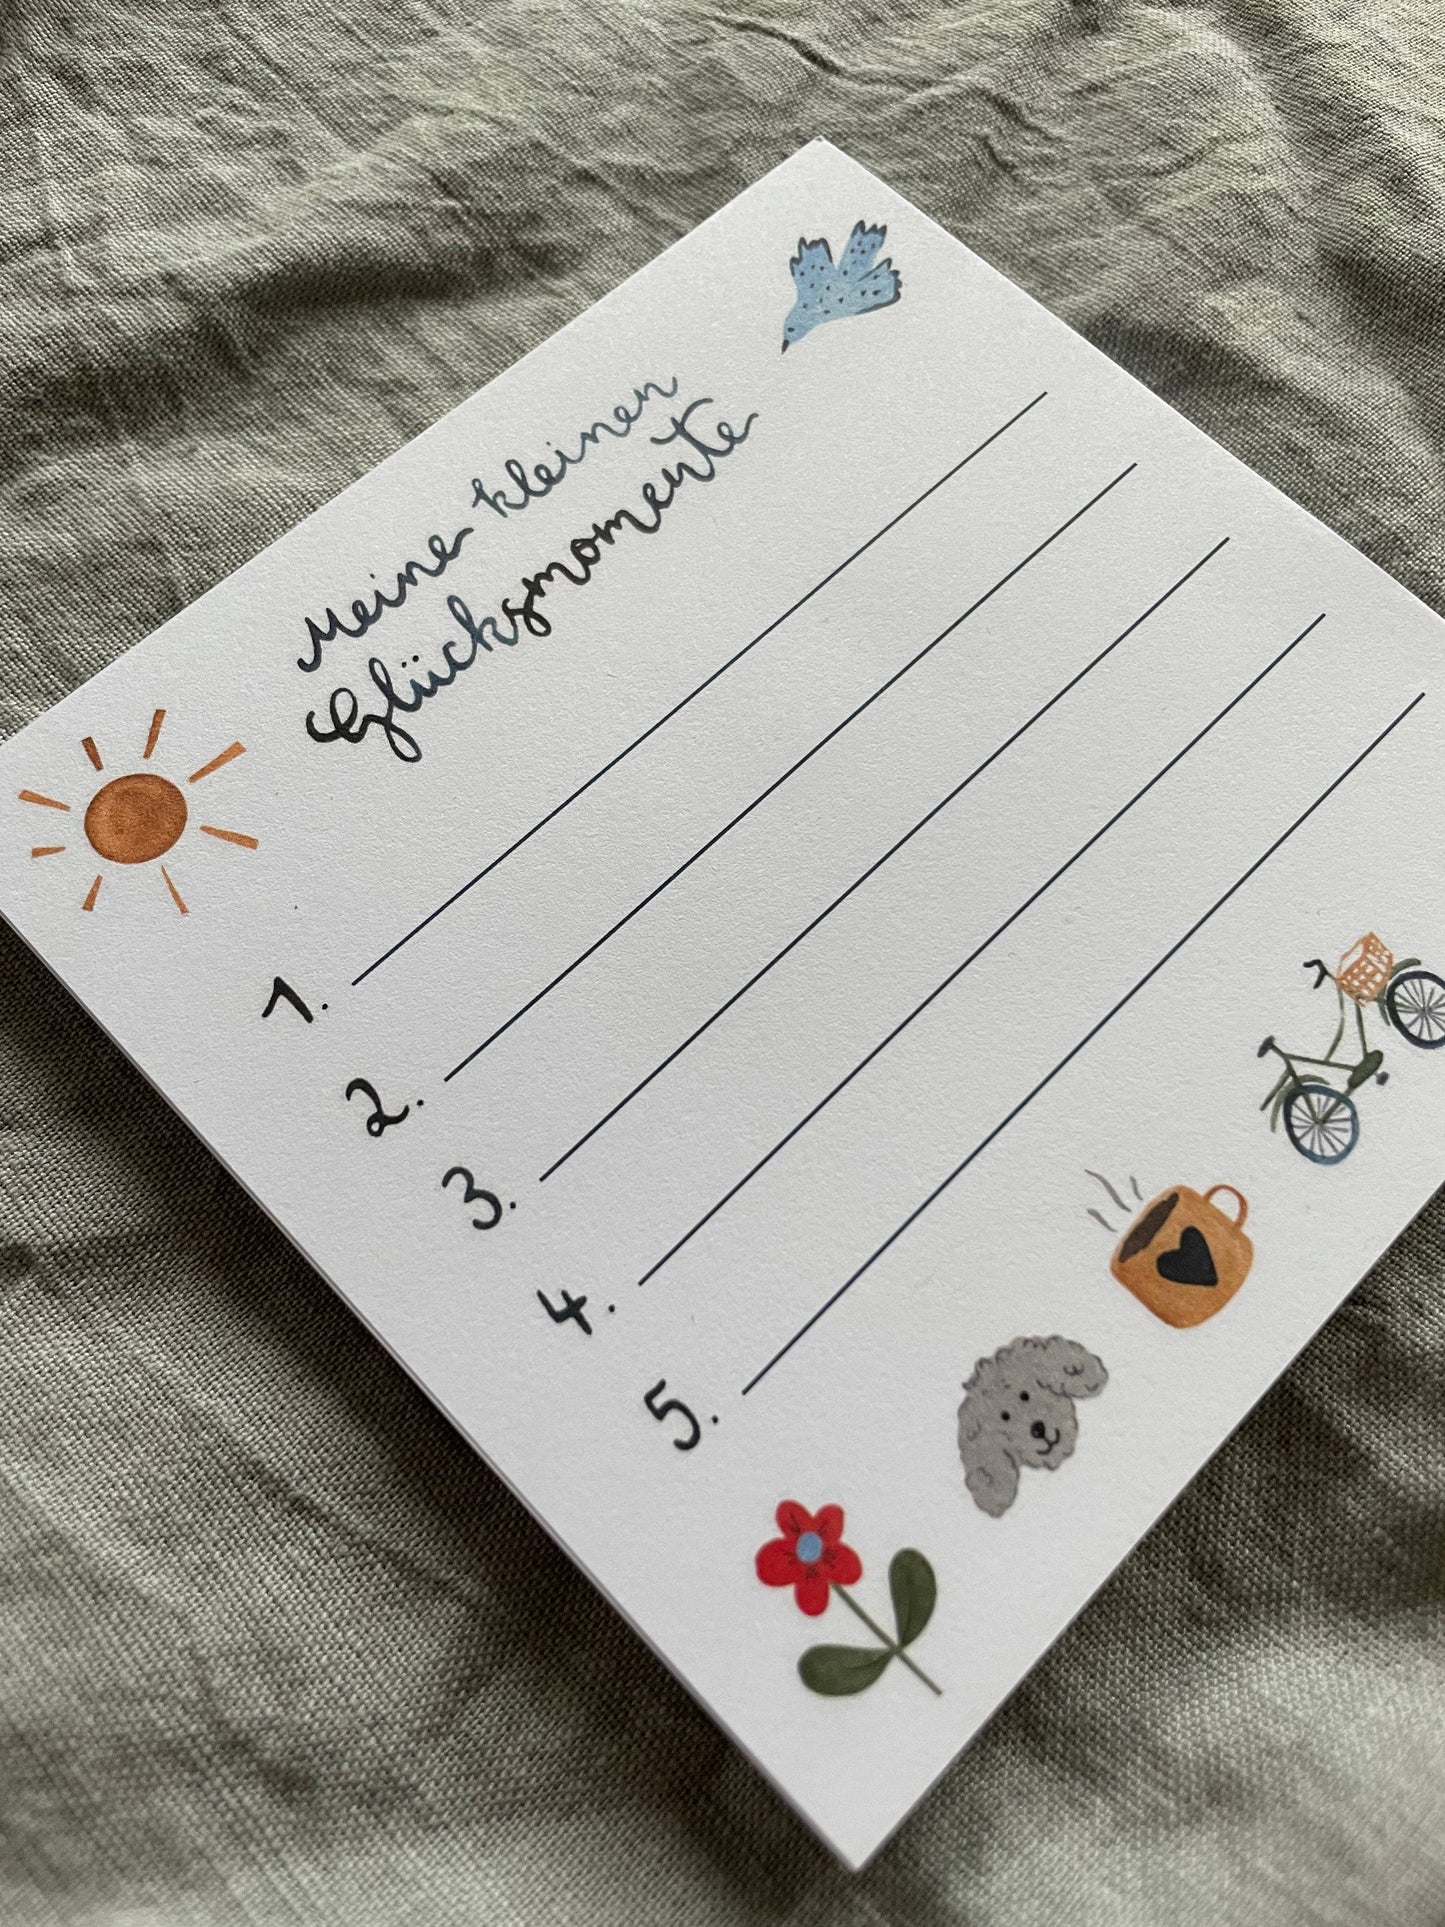 Meine kleinen
Glücksmomente
1.
2.
3.
4.
5.